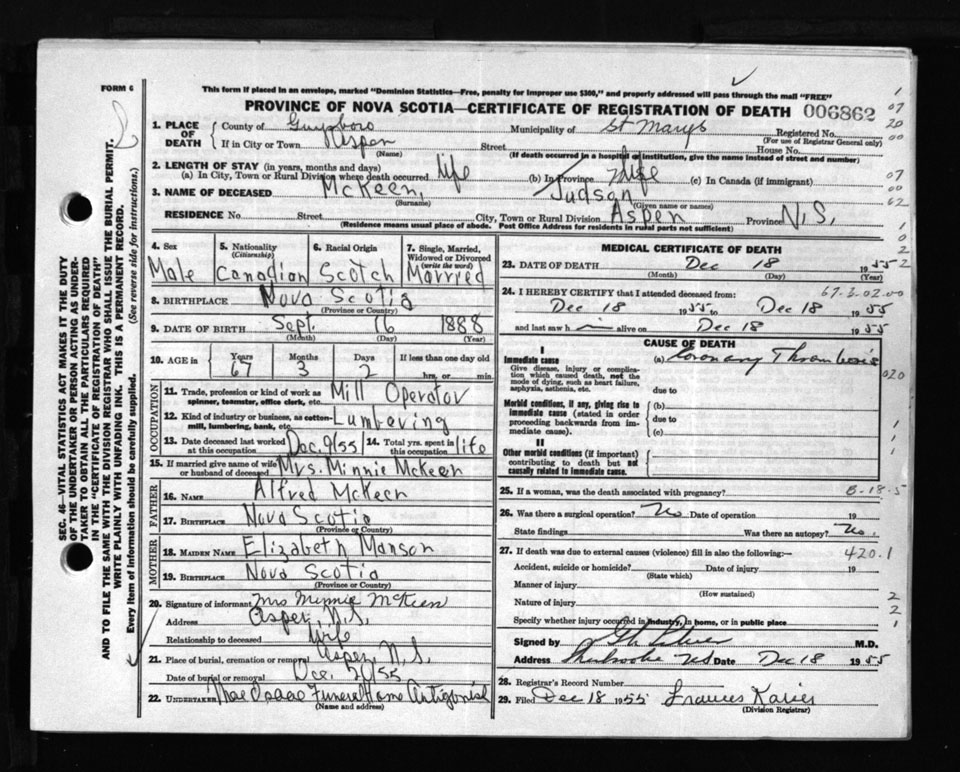 FORM 6
This form if placed in an envelope, marked "Dominion Statistics—Free, penalty for improper use $300," and properly addressed will pass through the mail "FREE"
PROVINCE OF NOVA SCOTIA—CERTIFICATE OF REGISTRATION OF DEATH 006862
1. PLACE OF DEATH { County of Guysboro Municipality of St Marys Registered No.
(For use of Registrar General only)
If in City or Town Aspen Street House No.
(Name) (If death occurred in a hospital or institution, give the name instead of street and number)
2. LENGTH OF STAY (in years, months and days)
(a) In City, Town or Rural Division where death occurred life (b) In Province life (c) In Canada (if immigrant)
3. NAME OF DECEASED McKeen, Judson
(Surname) (Given name or names)
RESIDENCE No Street City, Town or Rural Division Aspen Province N.S.
(Residence means usual place of abode. Post Office Address for residents in rural parts not sufficient)
4. Sex 5. Nationality (Citizenship) 6. Racial Origin 7. Single, Married, Widowed or Divorced (write the word)
Male Canadian Scotch Married
8. BIRTHPLACE Nova Scotia
(Province or Country)
9. DATE OF BIRTH Sept. 16 1888
(Month) (Day) (Year)
10. AGE in Years Months Days If less than one day old
67 3 2 hrs. or min.
OCCUPATION
11. Trade, profession or kind of work as spinner, teamster, office clerk, etc. Mill Operator
12. Kind of industry or business, as cotton-mill, lumbering, bank, etc. Lumbering
13. Date deceased last worked at this occupation Dec. 9/55 14. Total yrs. spent in this occupation life
15. If married give name of wife or husband of deceased Mrs. Minnie McKeen
FATHER
16. NAME Alfred McKeen
17. BIRTHPLACE Nova Scotia
(Province or Country)
MOTHER
18. MAIDEN NAME Elizabeth Manson
19. BIRTHPLACE Nova Scotia
(Province or Country)
20. Signature of informant Mrs Minnie McKeen
Address Aspen, N.S.
Relationship to deceased Wife
21. Place of burial, cremation or removal Aspen, N.S.
Date of burial or removal Dec. 20 55
22. UNDERTAKER MacIsaac Funeral Home Antigonish
(Name and address)
MEDICAL CERTIFICATE OF DEATH
23. DATE OF DEATH Dec 18 1955
(Month) (Day) (Year)
24. I HEREBY CERTIFY that I attended deceased from: 67-3-02-00
Dec 18 1955 to Dec 18 1955
and last saw h im alive on Dec 18 1955
CAUSE OF DEATH
I
Immediate cause (a) Coronary Thrombosis
Give disease, injury or complication which caused death, not the mode of dying, such as heart failure, asphyxia, asthenia, etc.
due to
Morbid conditions, if any, giving rise to immediate cause (stated in order proceeding backwards from immediate cause).
(b)
due to
(c)
II
Other morbid conditions (if important) contributing to death but not causally related to immediate cause.
25. If a woman, was the death associated with pregnancy? 8-18-5
26. Was there a surgical operation? No Date of operation 19
State findings Was there an autopsy? No.
27. If death was due to external causes (violence) fill in also the following:— 420.1
Accident, suicide or homicide? Date of injury 19
(State which)
Manner of injury
(How sustained)
Nature of injury
Specify whether injury occurred in industry, in home, or in public place
Signed by M.D.
Address Sherbrooke NS Date Dec 18 1955
28. Registrar's Record Number
29. Filed Dec 18 1955 Frances Kaiser
(Division Registrar)
1
07
20
00
07
00
62
1
0
2
2
020
1
1
1
2
2
1
SEC. 46—VITAL STATISTICS ACT MAKES IT THE DUTY
OF THE UNDERTAKER OR PERSON ACTING AS UNDER-
TAKER TO OBTAIN ALL THE PARTICULARS REQUIRED
IN THE "CERTIFICATE OF REGISTRATION OF DEATH"
AND TO FILE THE SAME WITH THE DIVISION REGISTRAR WHO SHALL ISSUE THE BURIAL PERMIT.
WRITE PLAINLY WITH UNFADING INK. THIS IS A PERMANENT RECORD.
Every item of information should be carefully supplied. (See reverse side for instructions.)